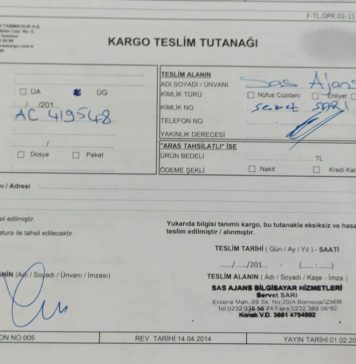 F-TL.OPR.02-11
KARGO TESLİM TUTANAĞI
ÜA ÜG
..../..../201....
AC 419548
Dosya Paket
TESLİM ALANIN
ADI SOYADI / ÜNVANI Sas Ajans
KİMLİK TÜRÜ Nüfus Cüzdanı Ehliyet
KİMLİK NO SARI
TELEFON NO.
YAKINLIK DERECESİ
"ARAS TAHSİLATLI" İSE
ÜRÜN BEDELİ TL
ÖDEME ŞEKLİ Nakit Kredi Kar
sı / Adresi
il edilmiştir.
atura ile tahsil edilecektir.
Yukarıda bilgisi tanımlı kargo, bu tutanakla eksiksiz ve hasa
teslim edilmiştir / alınmıştır.
TESLİM TARİHİ ( Gün / Ay / Yıl ) - SAATİ
..../..../201... - (.....:.....)
ENİN (Adı / Soyadı / Ünvanı / İmzası)
TESLİM ALANIN ( Adı / Soyadı / Kaşe - İmza )
SAS AJANS BİLGİSAYAR HİZMETLERİ
Servet SARI
Erzene Mah.,69 Sk.No:20 Bornova/İZMİR
Konak V.D.
ON NO:005
REV. TARİHİ 14.04.2014
YAYIN TARİHİ 01.02.20